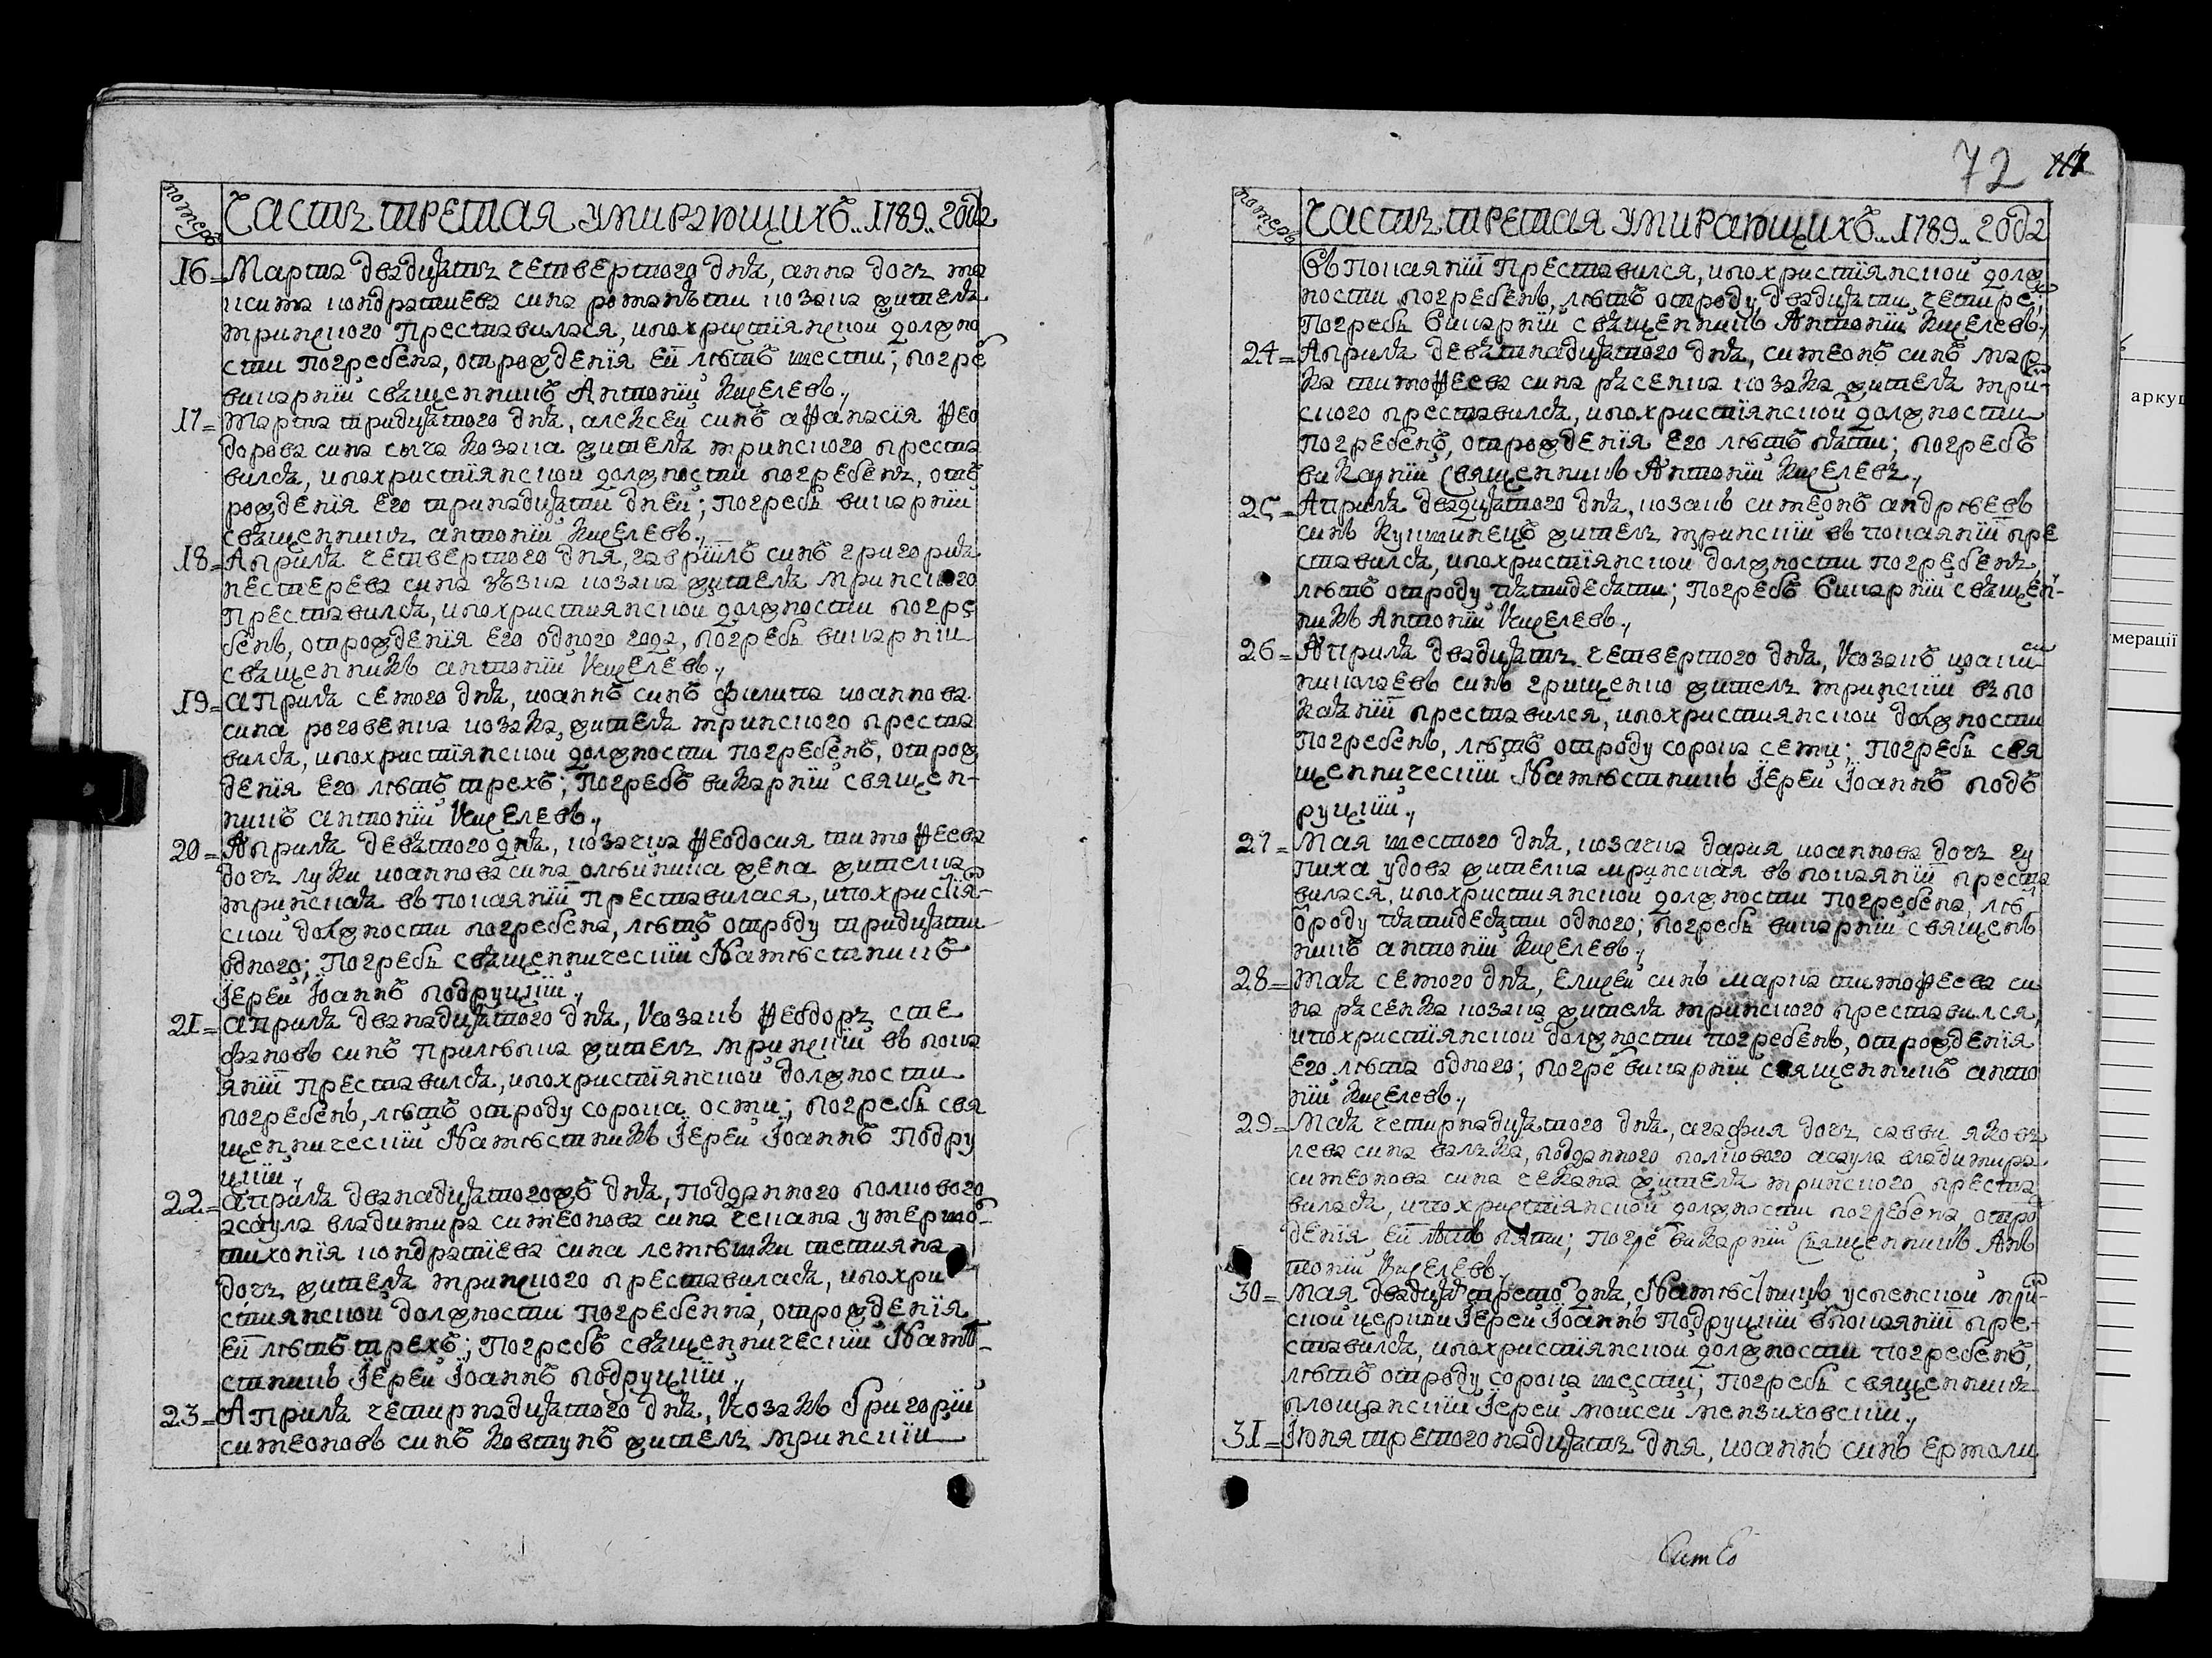 номеръ
Часть третая умирающихъ..1789..года
16=Марта двадцять четвертого дня, анна дочь ма
ксима кондратиева сина романъти козака жителя
мринского Преставилася, и по христїянской должно
сти погребена, отрождения ей лѣтъ шести; погре
викарнїй священникъ Антонїй Кщелевъ.,
17=Марта тридцятого дня, алексей синъ афанасїя Фео
дорова сина сыча козака жителя мринского преста
вился, и по христїянской должности погребенъ, отъ
рождения его тринадцяти дней; погребъ викарнїй
священникъ антонїй Кщелевъ.,
18=Априля четвертого дня, гаврїилъ синъ григория
нестерева сина зѣзка козака жителя мринского
Преставился, и по християнской должности погре
бенъ, отрождения его одного года, погребъ викарнїй
священникъ антонїй Кщелевъ.,
19=Априля семого дня, иоаннъ синъ филипа иоаннова
сина роговенка козака, жителя мринского преста
вился, и по христїянской должности погребенъ, отрож
дения его лѣтъ трехъ; Погребъ викарнїй священ-
никъ антонїй Кщелевъ.,
20=Априля девятого дня, козачка Феодосия тимофеева
дочь луки иоаннова сина олѣйника жена жителка
мринская въ покаянїй Преставилася, и по христїя-
ской должности погребена, лѣтъ отроду тридцяти
одного; Погребъ священнический Намѣстникъ
Їерей Їоаннъ подруцкїй.,
21=Априля дванадцятого дня, Козакъ Феодоръ сте
фановъ синъ Прилѣпка жителъ мринский въ пока
янїй Преставился, и по христїянской должности
погребенъ, лѣтъ отроду сорока осми; погребъ свя
щеннический Намѣстникъ Їерей Їоаннъ Подру
цкїй.,
22=Априля дванадцятогожъ дня, подданного полкового
асаула владимира симеонова сина чекана умершо-
тихонїя кондратїева сина лемѣшки тетияна
дочь жителя мринского преставилася, и по хри
стиянской должности погребенна, отрождения
ей лѣтъ трехъ; Погребъ священнический Намѣ-
стникъ Їерей Їоаннъ подруцкїй.,
23=Априля четирнадцятого дня, Козакъ Григорїй
симеоновъ синъ Ковтунъ жителъ мринский
72
номеръ
Часть третая умирающихъ..1789..года
въ покаянїй Преставился, и по христїянской долж
ности погребенъ, лѣтъ отроду двадцяти четире;
Погребъ викарнїй священникъ Антонїй Кщелевъ.,
24=Априля девятнадцятого дня, симеонъ синъ мар
ка тимофеева сина расенка козака жителя мрин-
ского преставился, и по христїянской должности
Погребенъ, отрождения его лѣтъ пяти; погребъ
викарнїй Священникъ Антонїй Кщелевъ.,
25=Априля двадцятого дня, козакъ симеонъ андрѣевъ
синъ Кушнинецъ жителъ мринский въ покаянїй пре
ставился, и по христїянской должности погребенъ,
лѣтъ отроду пятидесяти; Погребъ викарнїй священ-
никъ Антонїй Кщелевъ.,
26=Априля двадцять четвертого дня, Козакъ иоанъ
николаевъ синъ грищенко жителъ мринский въ по
каянїй преставился, и по християнской должности
Погребенъ, лѣтъ отроду сорока семи; Погребъ свя
щеннический Намѣстникъ Їерей Їоаннъ подъ
руцкїй.,
27=Мая шестого дня, козачка дария иоаннова дочь гу
пиха удова жителка мринская въ покаянїй преста
вилася, и по християнской должности погребена, лѣ
отроду пятидесяти одного; погребъ викарнїй священъ
никъ антонїй Кщелевъ.,
28=Мая семого дня, Елисей синъ марка тимофеева си
на расенка козака жителя мринского преставился,
и по христїянской должности погребенъ, отрождения
его лѣта одного; погре викарнїй священникъ анто
нїй Кщелевъ.,
29=Мая четирнадцятого дня, агафия дочь савви яковъ
лева сина валѣка, подданного полкового асаула владимира
симеонова сина чекана жителя мринского преста
вилася, и по христїянской должности погребена, отро
дения ей лѣтъ пяти; Погре викарнїй Священникъ Анъ
тонїй Кщелевъ.,
30=Мая двадцят трето дня, Намѣстникъ успенской мрин-
ской церкви Їерей Їоаннъ Подруцкїй въ покаянїй пре-
ставился, и по христїянской должности погребенъ,
лѣтъ отроду сорока шести; Погребъ священникъ
площанский Їерей моисей мензиховский.,
31=Їюня третогонадцять дня, иоаннъ синъ ермоли
Симео
аркуш
мерації